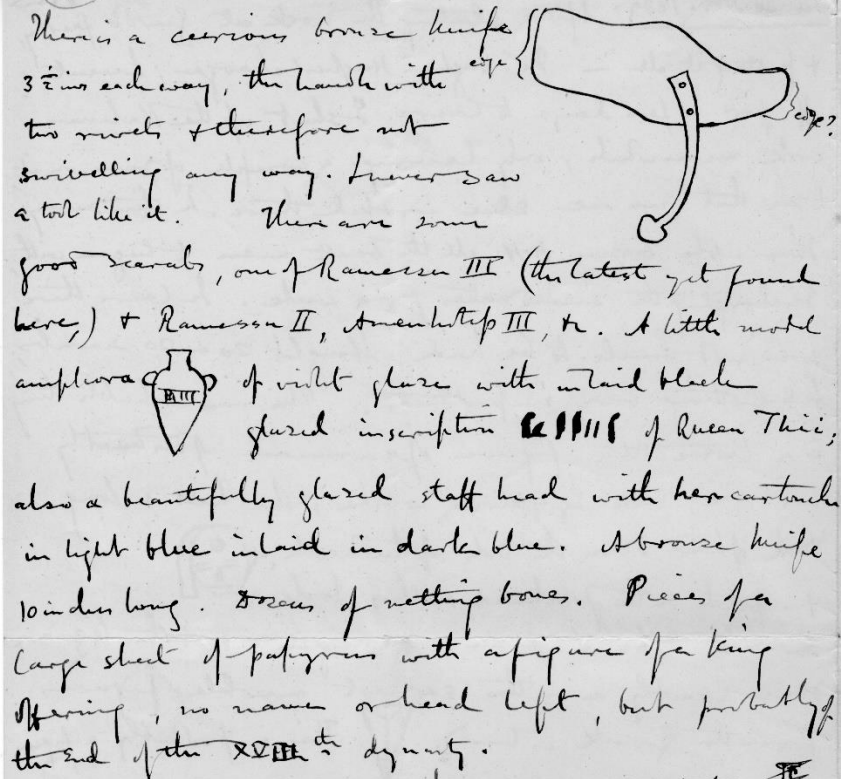 There is a curious bronze knife
edge
3 1/2 ins each way, the handle with
two rivets & therefore not
edge?
swivelling any way. I never saw
a tool like it. There are some
good scarabs, one of Ramessu III (the latest yet found
here,) & Ramessu II, Amenhotep III, &c. A little model
amphora of violet glaze with inlaid black
glazed inscription of Queen Thii;
also a beautifully glazed staff head with her cartouche
in light blue inlaid in dark blue. A bronze knife
10 inches long. Dozens of netting bones. Pieces of a
large sheet of papyrus with a figure of a king
offering, no name or head left, but probably of
the end of the XVIIIth dynasty.